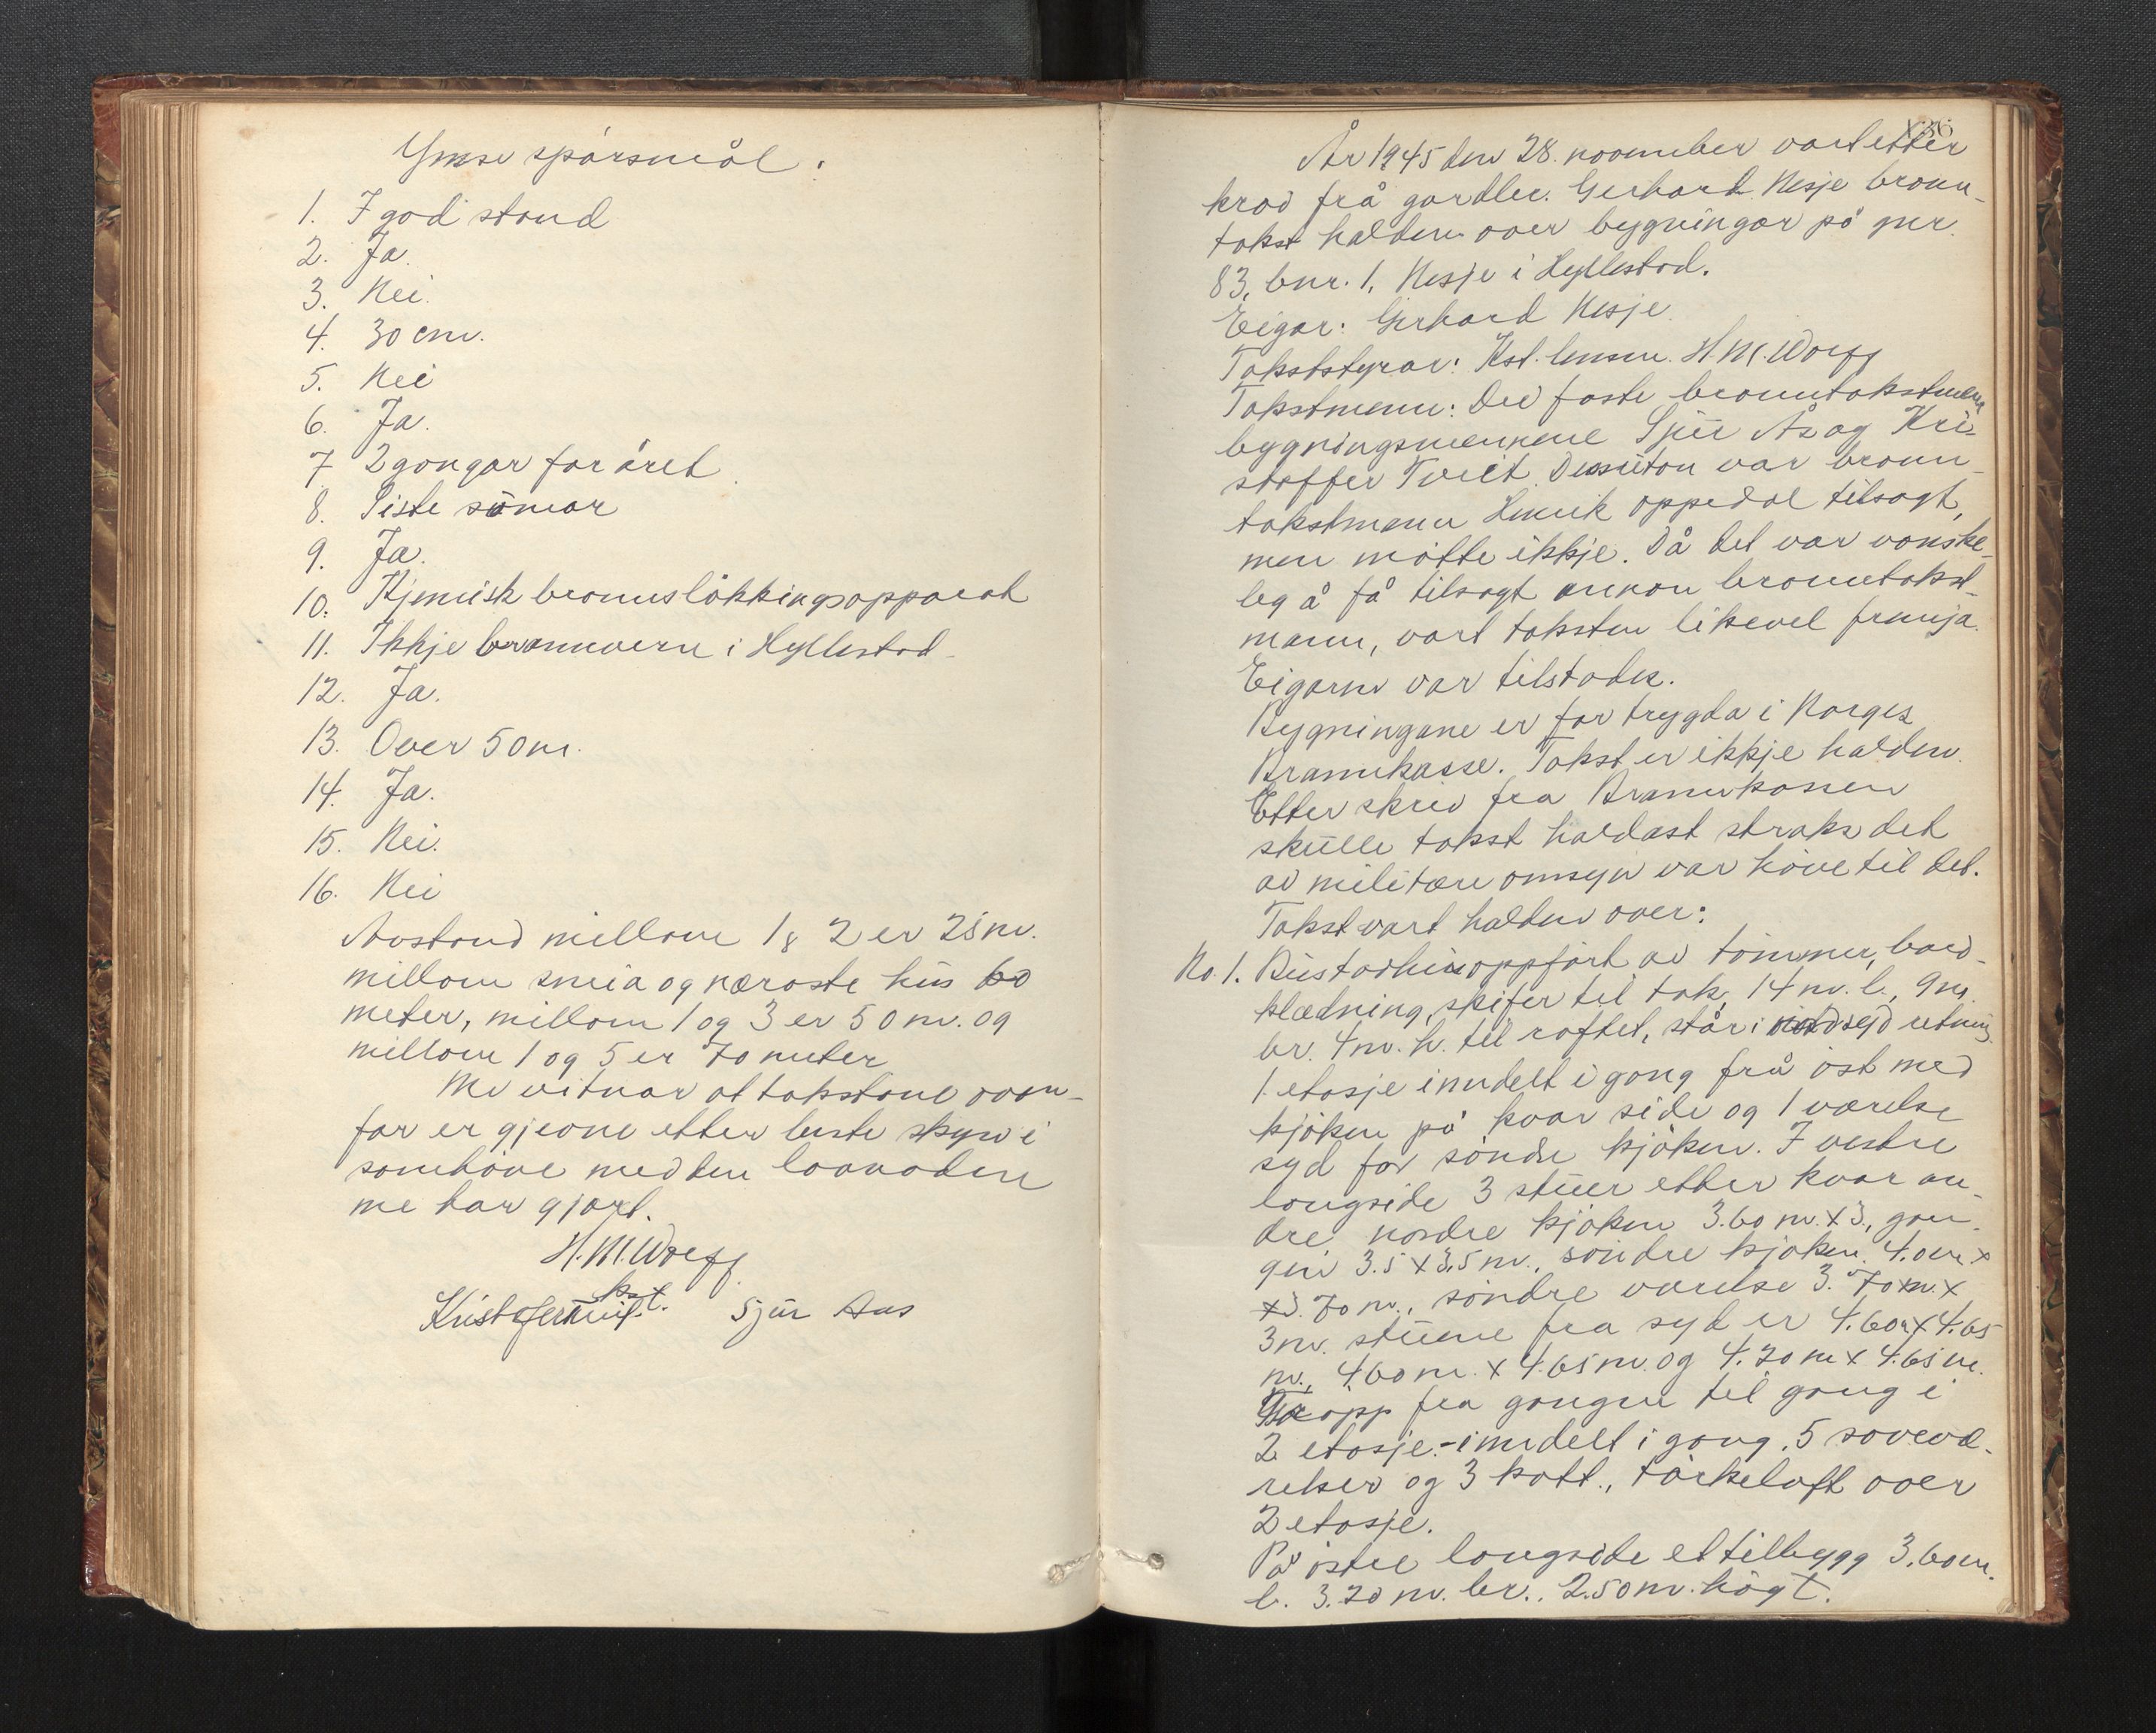 Ymse spörsmål:
1. I god stand
2. Ja.
3. Nei.
4. 30 cm.
5. Nei
6. Ja.
7. 2 gongar for året.
8. Siste sumar
9. Ja.
10. Kjemisk brannslökkingsapparat
11. Ikkje brannvern i Hyllestad
12. Ja.
13. Over 50 m.
14. Ja.
15. Nei.
16. Nei
Avstand millom 1 & 2 er 25 m.
millom smia og næraste hus 60
meter, millom 1 og 3 er 50 m. og
millom 1 og 5 er 70 meter
Me vitnar at takstane ovan-
for er gjevne etter beste skyn i
samhöve med den lovnaden
me har gjort.
H. M. Wolff
kst.
Kristoffer Tveit. Sjur Aas
136
År 1945 den 28. november vart etter
krav frå gardbr. Gerhard Nesje brann-
takst halden over bygningar på gnr.
83, bnr. 1, Nesje i Hyllestad.
Eigar: Gerhard Nesje.
Takststyrar: Kst. lensm. H. M. Wolff
Takstmenn: Dei faste branntakstmenn
bygningsmennene Sjur Ås og Kri-
stoffer Tveit. Dessutan var brann-
takstmann Henrik Oppedal tilsagt,
men mötte ikkje. Då det var vanske-
leg å få tilsagt annan branntakst-
mann, vart taksten likevel fremja.
Eigaren var tilstades.
Bygningane er for trygda i Norges
Brannkasse. Takst er ikkje halden.
Etter skriv fra Brannkassen
skulle takst haldast straks det
av militære omsyn var höve til det.
Takst vart halden over:
No. 1. Bustadhus oppfört av tömmer, bord-
klædning, skifer til tak, 14 m. l., 9 m.
br. 4 m. h. til raftet, står i nord syd retning.
1. etasje inndelt i gong frå öst med
kjöken på kvar side og 1 værelse
syd for söndre kjöken. I vestre
langside 3 stuer etter kvar an-
dre, nordre kjöken 3.60 m. x 3., gan-
gen 3.5 x 3,5 m., söndre kjöken 4.0 m x
x 3.70 m., söndre værelse 3.70 m. x
3 m. stuene fra syd er 4.60 m x 4.65
m., 4.60 m. x 4.65 m. og 4.70 m x 4.65 m.
opp fra gangen til gang i
2 etasje.- inndelt i gong, 5 soveva-
relser og 3 kott., törkeloft over
2 etasje.
På östre langside et tilbygg 3.60 m.
l. 3.70 m. br., 2.50 m. högt.